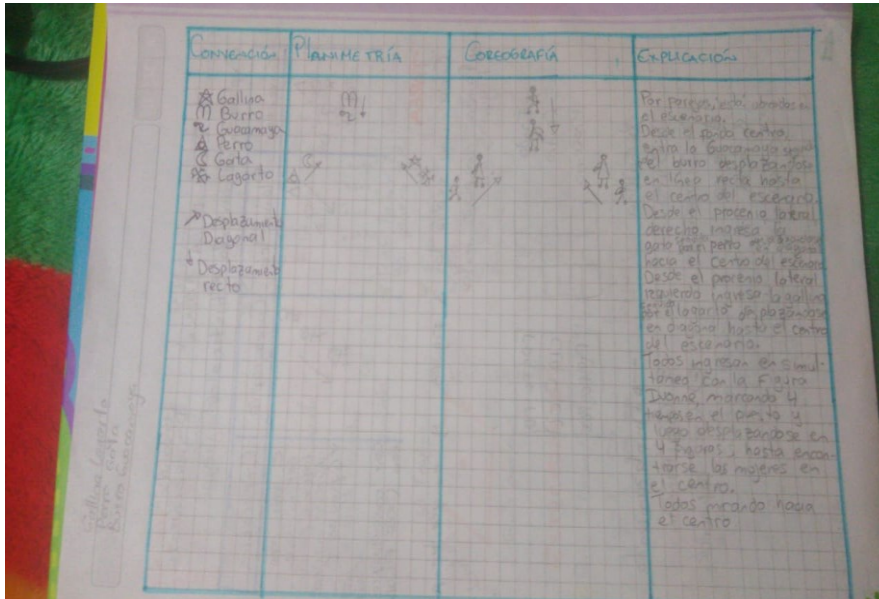 CONVENCIÓN PLANIMETRÍA COREOGRAFÍA EXPLICACIÓN
Gallina
Burro
Guacamaya
Perro
Gata
Lagarto
Desplazamiento
Diagonal
Desplazamiento
recto
Por parejas, están ubicados en
el escenario.
Desde el fondo centro,
entra la Guacamaya
del burro desplazandose
en línea recta hasta
el centro del escenario.
Desde el procenio lateral
derecho ingresa la
gata perro en
hacia el Centro del escenario
Desde el procenio lateral
izquierdo ingresa la gallina
lagarto desplazandose
en hasta el centro
del escenario.
Todos ingresan en simul-
tanea con la Figura
marcando 4
en el puesto y
luego desplazandose en
4 figuras, hasta encon-
trarse las mujeres en
el centro.
Todos mirando hacia
el centro
Gallina Lagarto
Perro Gata
Burro Guacamaya